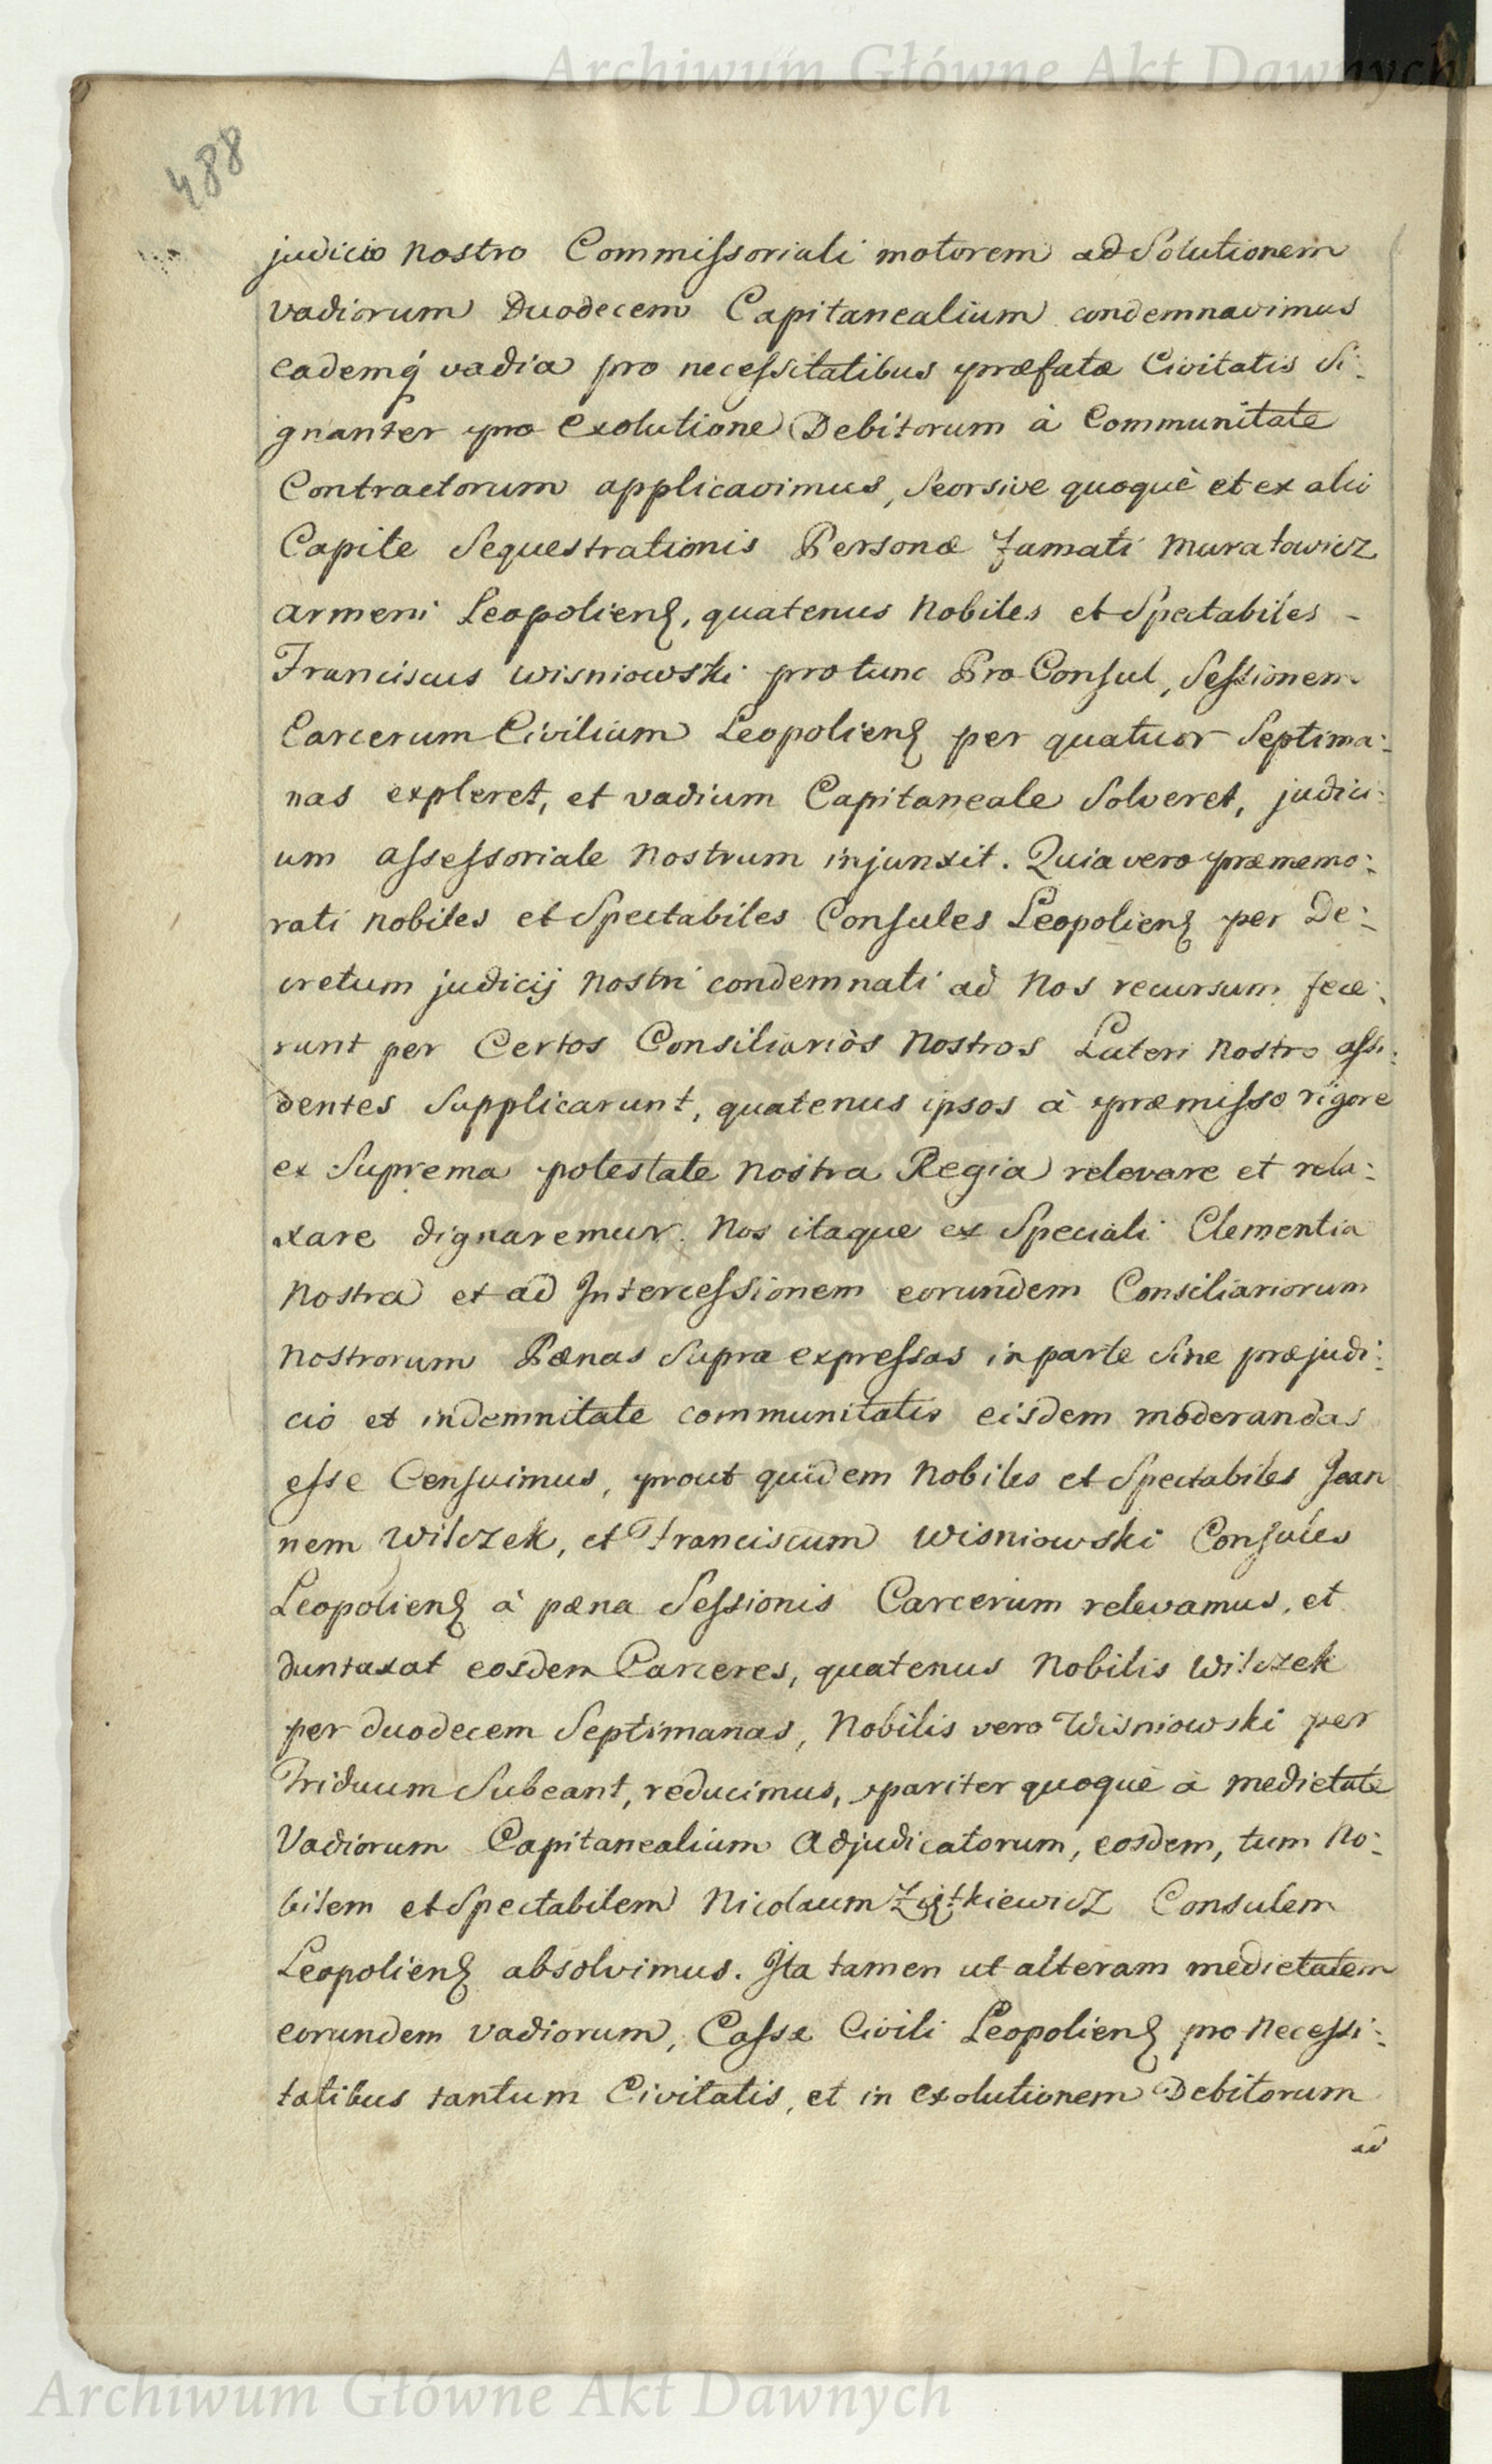 Archiwum Główne Akt Dawnych
488
judicio nostro Commissoriali motorem ad Solutionem
vadiorum Duodecem Capitanealium condemnavimus
eademq́ vadia pro necessitatibus præfatæ Civitatis Si:
gnanter pro Exolutione Debitorum à Communitate
Contractorum applicavimus, Seorsive quoquè et ex alio
Capite Sequestrationis Personæ Famati Muratowicz
Armeni Leopolienȝ, quatenus Nobiles et Spectabiles -
Franciscus Wisniowski pro tunc Pro Consul, Sessionem
Carcerum Civilium Leopolienȝ per quatuor Septima:
nas expleret, et vadium Capitaneale Solveret, judici:
um Assessoriale Nostrum injunxit. Quia vero præmemo:
rati Nobiles et Spectabiles Consules Leopolienȝ per De:
cretum judicij Nostri condemnati ad Nos recursum fece:
runt per Certos Consiliariòs Nostros Lateri Nostro assi:
dentes Supplicarunt, quatenus ipsos à præmisso rigore
ex Suprema potestate Nostra Regia relevare et rela:
xare dignaremur. Nos itaque ex Speciali Clementia
Nostra et ad Intercessionem eorundem Consiliariorum
Nostrorum Pænas Supra expressas in parte Sine præjudi:
cio et indemnitate communitatis eisdem moderandas
esse Censuimus, prout quidem Nobiles et Spectabiles Joan
nem Wilczek, et Franciscum Wisniowski Consules
Leopolienȝ à pæna Sessionis Carcerum relevamus, et
duntaxat eosdem Carceres, quatenus Nobilis Wilczek
per duodecem Septimanas, Nobilis vero Wisniowski per
Triduum Subeant, reducimus, pariter quoquè à medietate
Vadiorum Capitanealium Adjudicatorum, eosdem, tum No:
bilem et Spectabilem Nicolaum Ziętkiewicz Consulem
Leopolienȝ absolvimus. Ita tamen ut alteram medietatem
eorundem vadiorum, Cassæ Civili Leopolienȝ pro Necessi:
tatibus tantum Civitatis, et in Exolutionem Debitorum
ad
Archiwum Główne Akt Dawnych